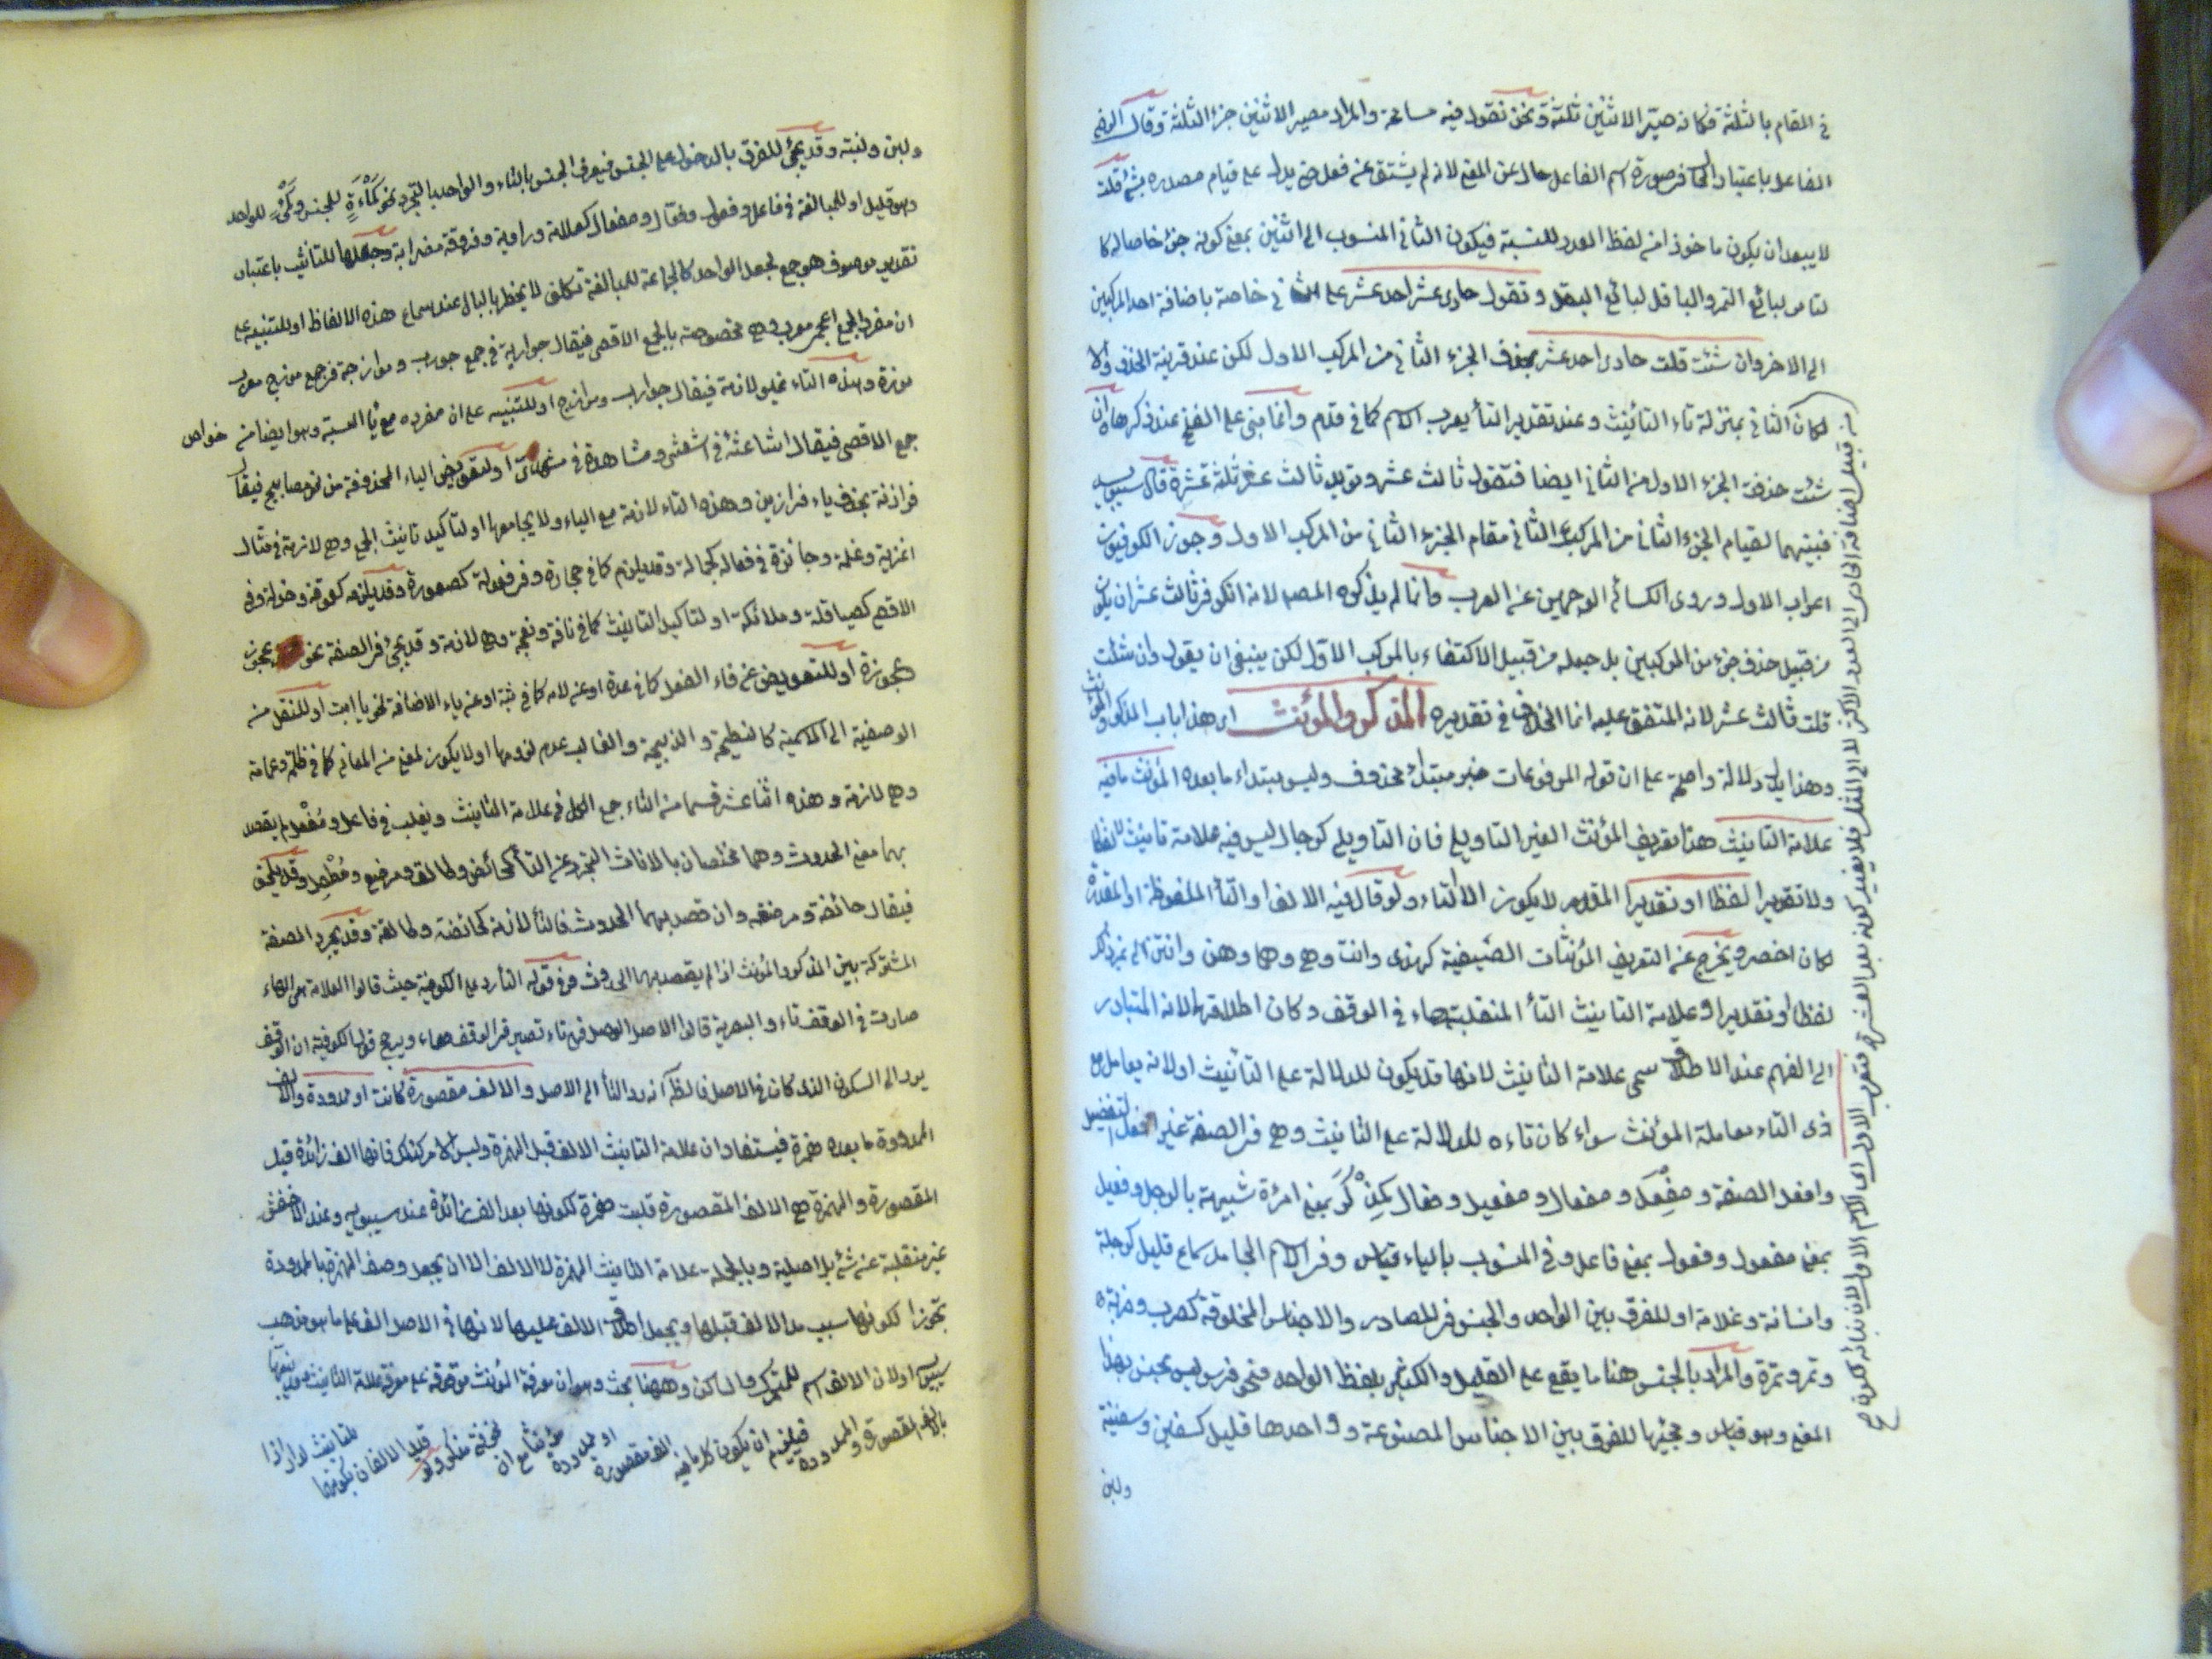 في المقام بالثلثة فكانه صيّر الاثنين ثلثة ونحن نقول فيه مسامحة والمراد مصير الاثنين جزء الثلثة وقال الرضي
الفاعل باعتبار الحال في صورة اسم الفاعل خال عن المعنى لانه لم يشتق عنه فعل حتى يدل على قيام مصدره بشئ قلت
لا يبعد ان يكون ماخوذا من لفظ العدد للنسبة فيكون الثاني المنسوب الى اثنين بمعنى كونه جزء خاصا له كا
لتامر لبائع التمر والباقل لبائع البقل وتقول حادى عشر احد عشر على الثاني خاصة باضافة احد المركبين
الى الاخر وان شئت قلت حادى احد عشر بحذف الجزء الثاني من المركب الاول لكن عند قرينة الحذف والا
لكان الثاني بمنزلة تاء التانيث وعند تقدير التأ يعرب الاسم كما في قدم وانما بنى على الفتح عند ذكرها وان
شئت حذفت الجزء الاول من الثاني ايضا فتقول ثالث عشر وتريد ثالث عشر ثلثة عشرة قال سيبويه
فبنيهما لقيام الجزء الثاني من المركب الثاني مقام الجزء الثاني من المركب الاول وجوز الكوفيون
اعراب الاول وروى الكسائي الوجهين عن العرب وانما لم يذكره المصم لانه انكر في ثالث عشر ان يكون
من قبيل حذف جزء من المركبين بل جعله من قبيل الاكتفاء بالمركب الاول لكن ينبغي ان يقول وان شئت
قلت ثالث عشر لانه المتفق عليه انما الخلاف في تقديره المذكر والمؤنث اى هذا باب المذكر والمؤنث
وهذا يدل دلالة واضحة على ان قوله المرفوعات خبر مبتداء محذوف وليس مبتداء ما بعده المؤنث ما فيه
علامة التانيث هذا تعريف المؤنث الغير التاويلى فان التاويلى كرجال ليس فيه علامة تانيث لا لفظا
ولا تقديرا لفظا او تقديرا المقدر لا يكون الا التاء ولو قال فيه الالف او التأ الملفوظة او المقدرة
لكان اخصر ويخرج عن التعريف المؤنثات الضميرية كهذى وانت وهى وهما وهن وانتن
لفظا او تقديرا وعلامة التانيث التأ المنقلبة هاء في الوقف وكان اطلاقها لانه المتبادر
الى الفهم عند الاطلاق سمى علامة التانيث لانها قد يكون للدلالة على التأنيث اولانه يعامل مع
ذى التاء معاملة المؤنث سواء كان تاءه للدلالة على التانيث وهى في الصفة غير افعل التفضيل
وافعل الصفة ومِفْعَل ومفعال ومفعيل وفعال كمِذْكَر بمعنى امرأة شبيهة بالرجل وفعيل
بمعنى مفعول وفعول بمعنى فاعل وفي المنسوب بالياء قياس وفي الاسم الجامد سماع قليل كرجلة
وانسانة وغلامة او للفرق بين الواحد والجنس في المصادر والاجناس المخلوقة كضرب وضربة
وتمر وتمرة والمراد بالجنس هنا ما يقع على القليل والكثير بلفظ الواحد فنحو فرس ليس بجنس بهذا
المعنى وهو قياس ومجيئها للفرق بين الاجناس المصنوعة وواحدها قليل كسفين وسفينة
ولبن
قبيل اضافة الى العدد الاكثر لا الى المثل فلا يفيد كونه بعد العشرة فتعرب الاول اى الاسم الاول لان بنائه
ولبن ولبنة وقد يجئ للفرق بالدخول على الجنس فيعرف الجنس بالتاء والواحد بالتجرد نحو كَمْأَةٍ للجنس وكَمْءٍ للواحد
وهو قليل او للمبالغة في فاعل وفعول وفعّال ومفعال كعلامة وراوية وفروقة ومضرابة وجعلها للتانيث باعتبار
تقدير موصوف هو جمع لجعل الواحد كالجماعة للمبالغة تكلف لا يخطر بالبال عند سماع هذه الالفاظ او للتنبيه على
ان مفرد الجمع اعجمى معرب وهى مخصوصة بالجمع الاقصى فيقال جواربة في جمع جورب وموازجة في جمع موزج معرب
موزة وهذه التاء غير لازمة فيقال جوارب وموازج او للتنبيه على ان مفرده مع يا النسبة وهو ايضا من خواص
جمع الاقصى فيقال اشاعثة في اشعثى ومشاهدة في مشهدىّ او لتعويض الياء المحذوفة من نحو مصابيح فيقال
فرازنة بحذف ياء فرازين وهذه التاء لازمة مع الياء ولا يجامعها او لتاكيد تانيث الجمع وهى لازمة في مثال
اغربة وغلمة وجائزة في فعالة كجمالة وقد يلزم كما في حجارة وفي فعولة كصقورة وقد يلزم كعمومة وخولة وفي
الاقصى كصياقلة وملائكة او لتاكيد التانيث كما في ناقة ونعجة وهى لازمة وقد يجئ في الصفة نحو عجوز
وعجوزة او للتعويض عن فاء الفعل كما في عدة او عن لامه كما في ثبة او عن ياء الاضافة نحو يا ابت او للنقل من
الوصفية الى الاسمية كالنطيحة والذبيحة والغالب عدم لزومها او لا يكون لمعنى من المعانى كما في ظلمة وعمامة
وهى لازمة وهذه اثنا عشر قسما من التاء جمع الكل في علامة التانيث ويغلب في فاعل ومُفْعِل لم يقصد
بهما معنى الحدوث وهما مختصان بالاناث التجرد عن التأ كحائض وطالق ومرضع ومُطْفِل وقد يلحق
فيقال حائضة ومرضعة وان قصد بهما الحدوث فالتأ لازمة كحائضة وطالقة وقد يجرد الصفة
المشتركة بين المذكر والمؤنث اذا لم يقصد بها الحدوث وفي قوله التأ رد على الكوفية حيث قالوا العلامة هى الهاء
صارت في الوقف تاء والبصرية قالوا الاصل الوصل فهى تاء تصير في الوقف هاء ويرجح قول الكوفية ان الوقف
يرد الى السكون الذى كان في الاصل فالظ انه رد التأ الى الاصل والالف مقصورة كانت او ممدودة والالف
الممدودة ما بعده همزة فيستفاد ان علامة التانيث الالف قبل الهمزة وليس الامر كذلك فانها الف زائدة قبل
المقصورة والهمزة هى الالف المقصورة قلبت همزة لكونها بعد الف زائدة عند سيبويه وعند الاخفش
غير منقلبة عن شئ بل اصلية وبالجملة علامة التانيث الهمزة لا الالف الا ان يجعل وصف الهمزة بالممدودة
تجوزا لكونها سبب مد الالف قبلها ويجعل اطلاق الالف عليها لانها في الاصل الف على ما هو مذهب
سيبويه اولان الالف اسم للمتحرك والساكن وههنا بحث وهو ان معرفة المؤنث متوقفة على معرفة علامة التانيث
بالالف المقصورة والممدودة فيلزم ان يكون كل ما فيه الف مقصورة او ممدودة مؤنثا مع ان
قيد الالفان بكونهما للتانيث لدار اذا